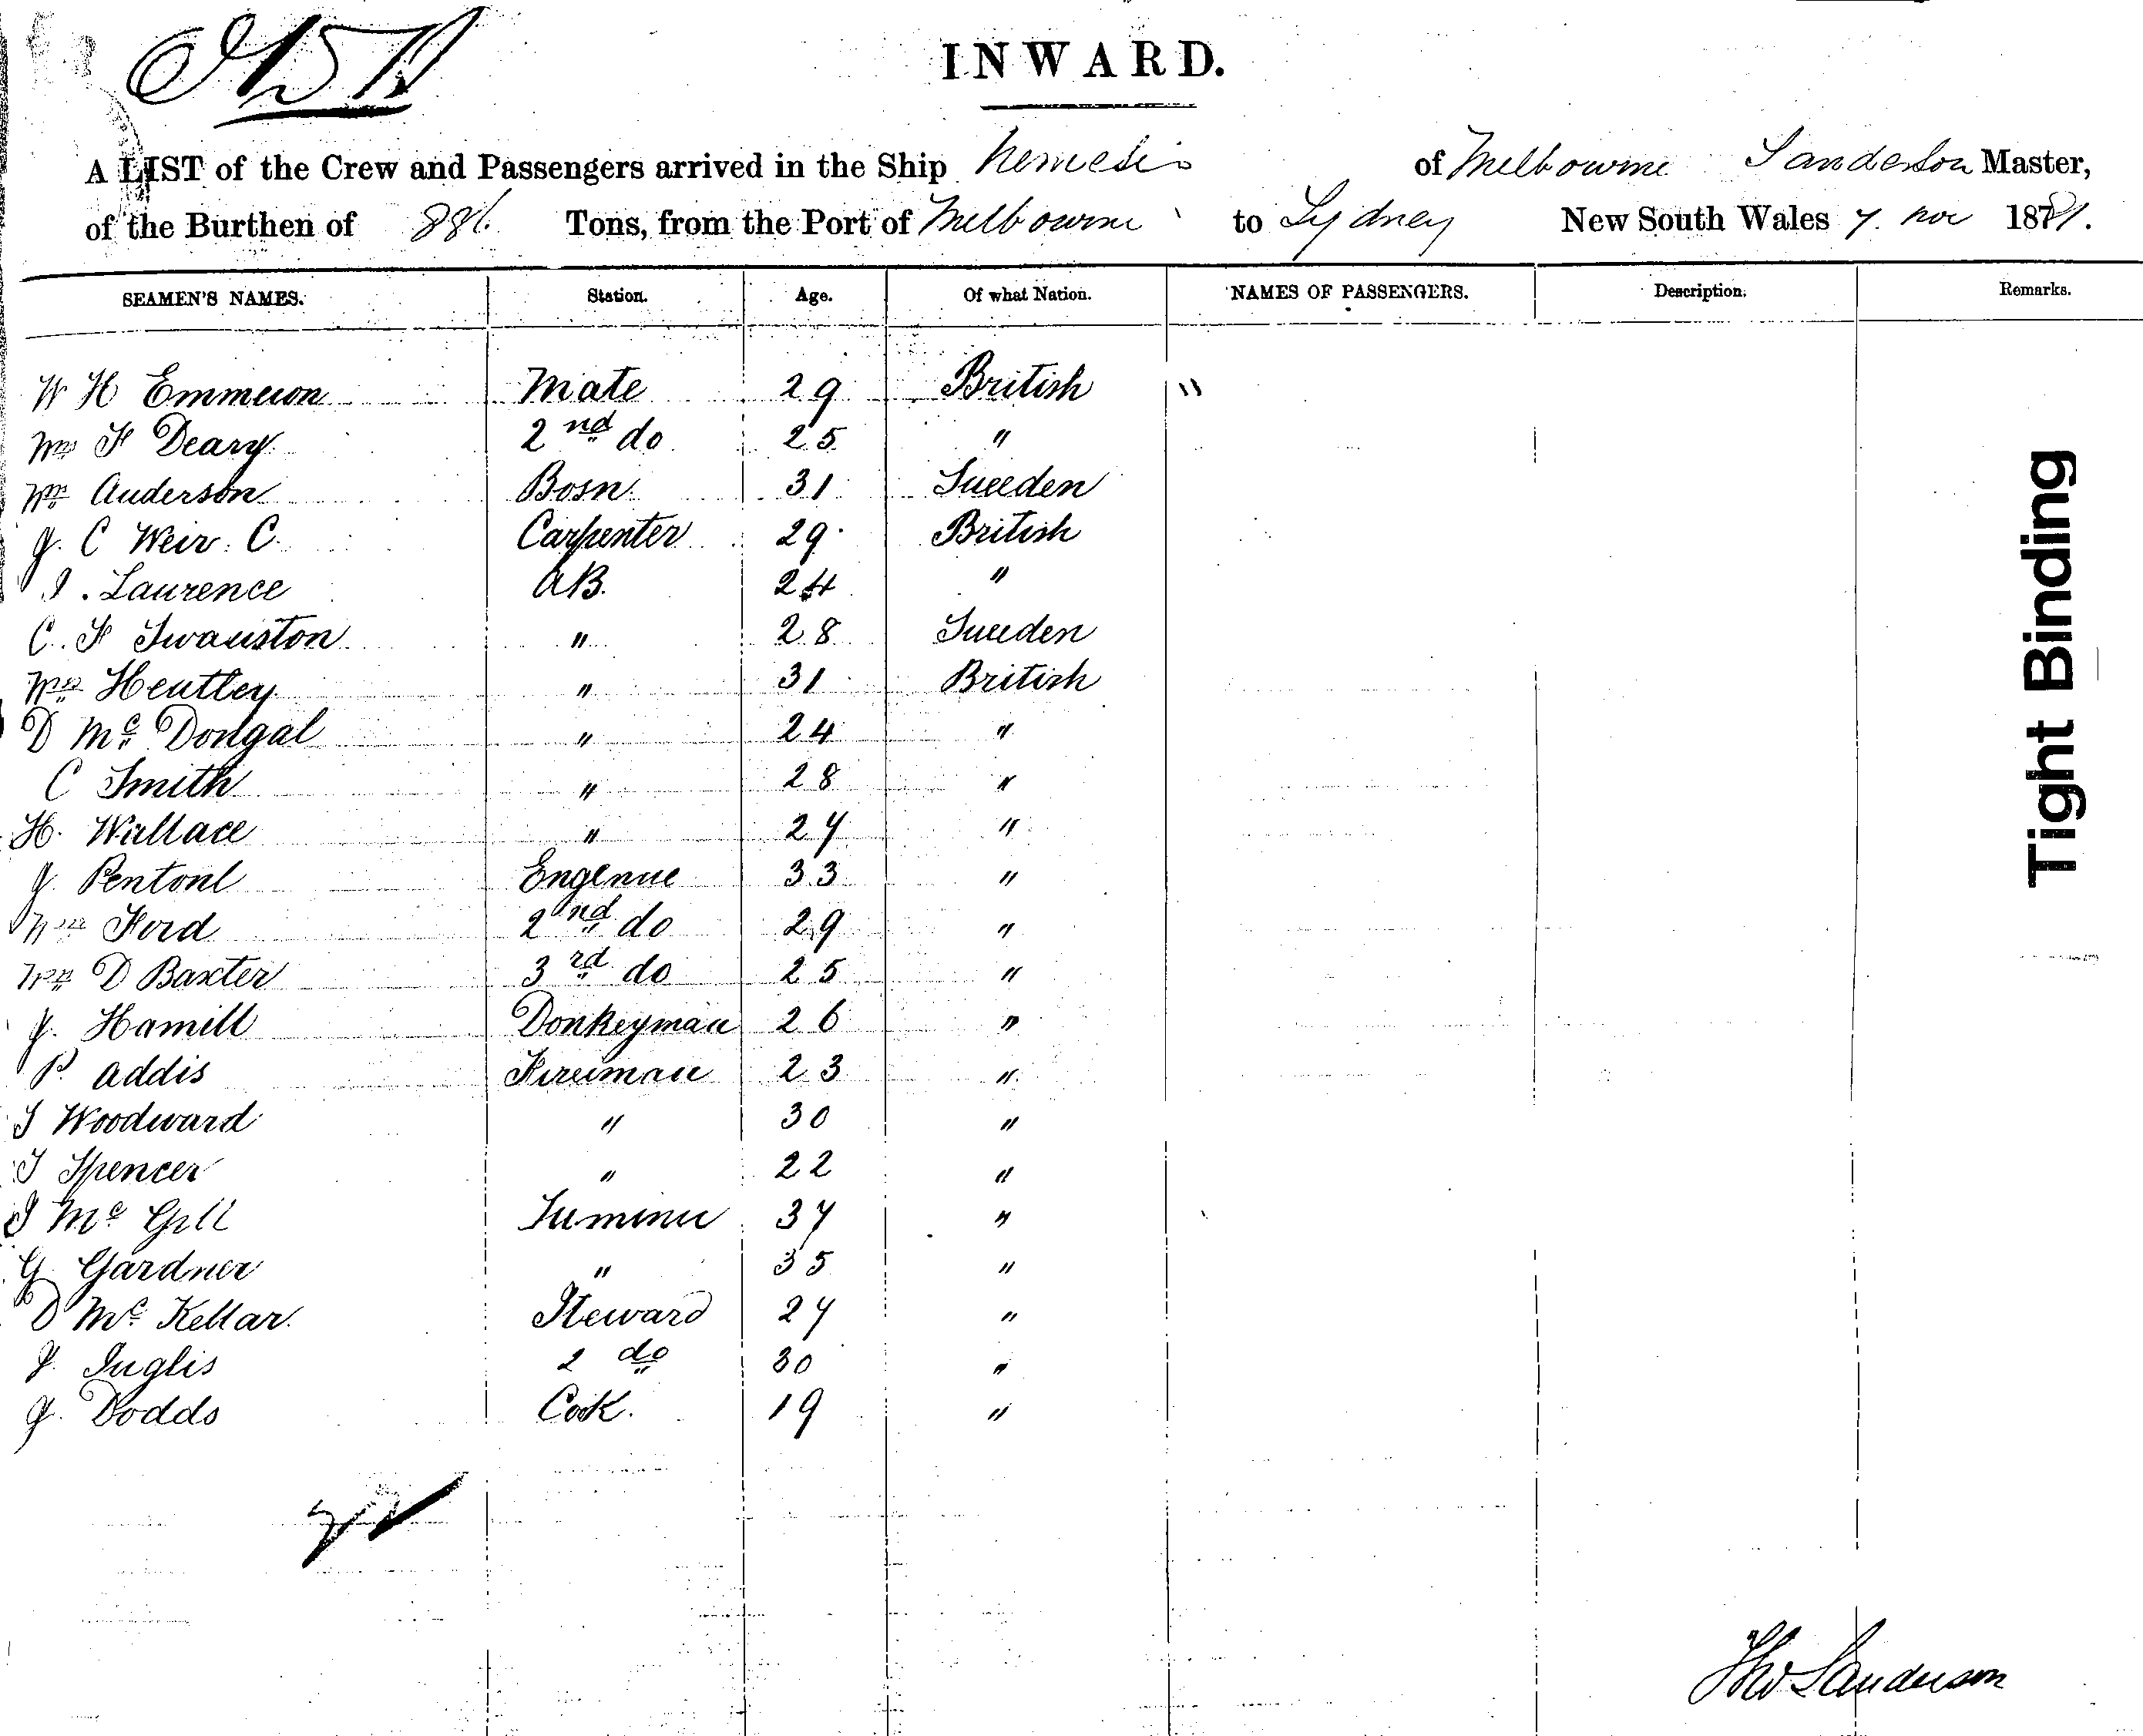 INWARD.
A LIST of the Crew and Passengers arrived in the Ship Nemesis of Melbourne Sanderson Master,
of the Burthen of 881. Tons, from the Port of Melbourne to Sydney New South Wales 7. Nov 1881.
SEAMEN'S NAMES. Station. Age. Of what Nation. NAMES OF PASSENGERS. Description. Remarks.
W H Emmerson Mate 29 British "
Wm F Deary 2nd do 25 "
Wm Anderson Bosn 31 Sweeden
J. C Weir. C. Carpenter 29 British
J. Laurence AB. 24 "
C. F Swanston " 28 Sweeden
Wm Hentley " 31 British
D Mc Dongal " 24 "
C Smith " 28 "
H. Wallace " 27 "
J. Pentonl 33 "
Wm Ford 2nd do 29 "
Wm D Baxter 3rd do 25 "
J. Hamill Donkeyman 26 "
P. Addis Fireman 23 "
J Woodward " 30 "
J Spencer " 22 "
J Mc Gill 37 "
G Gardner " 35 "
D Mc Kellar. Steward 27 "
J. Inglis 2 do 30 "
J. Dodds Cook. 19 "
Tho Sanderson
Tight Binding